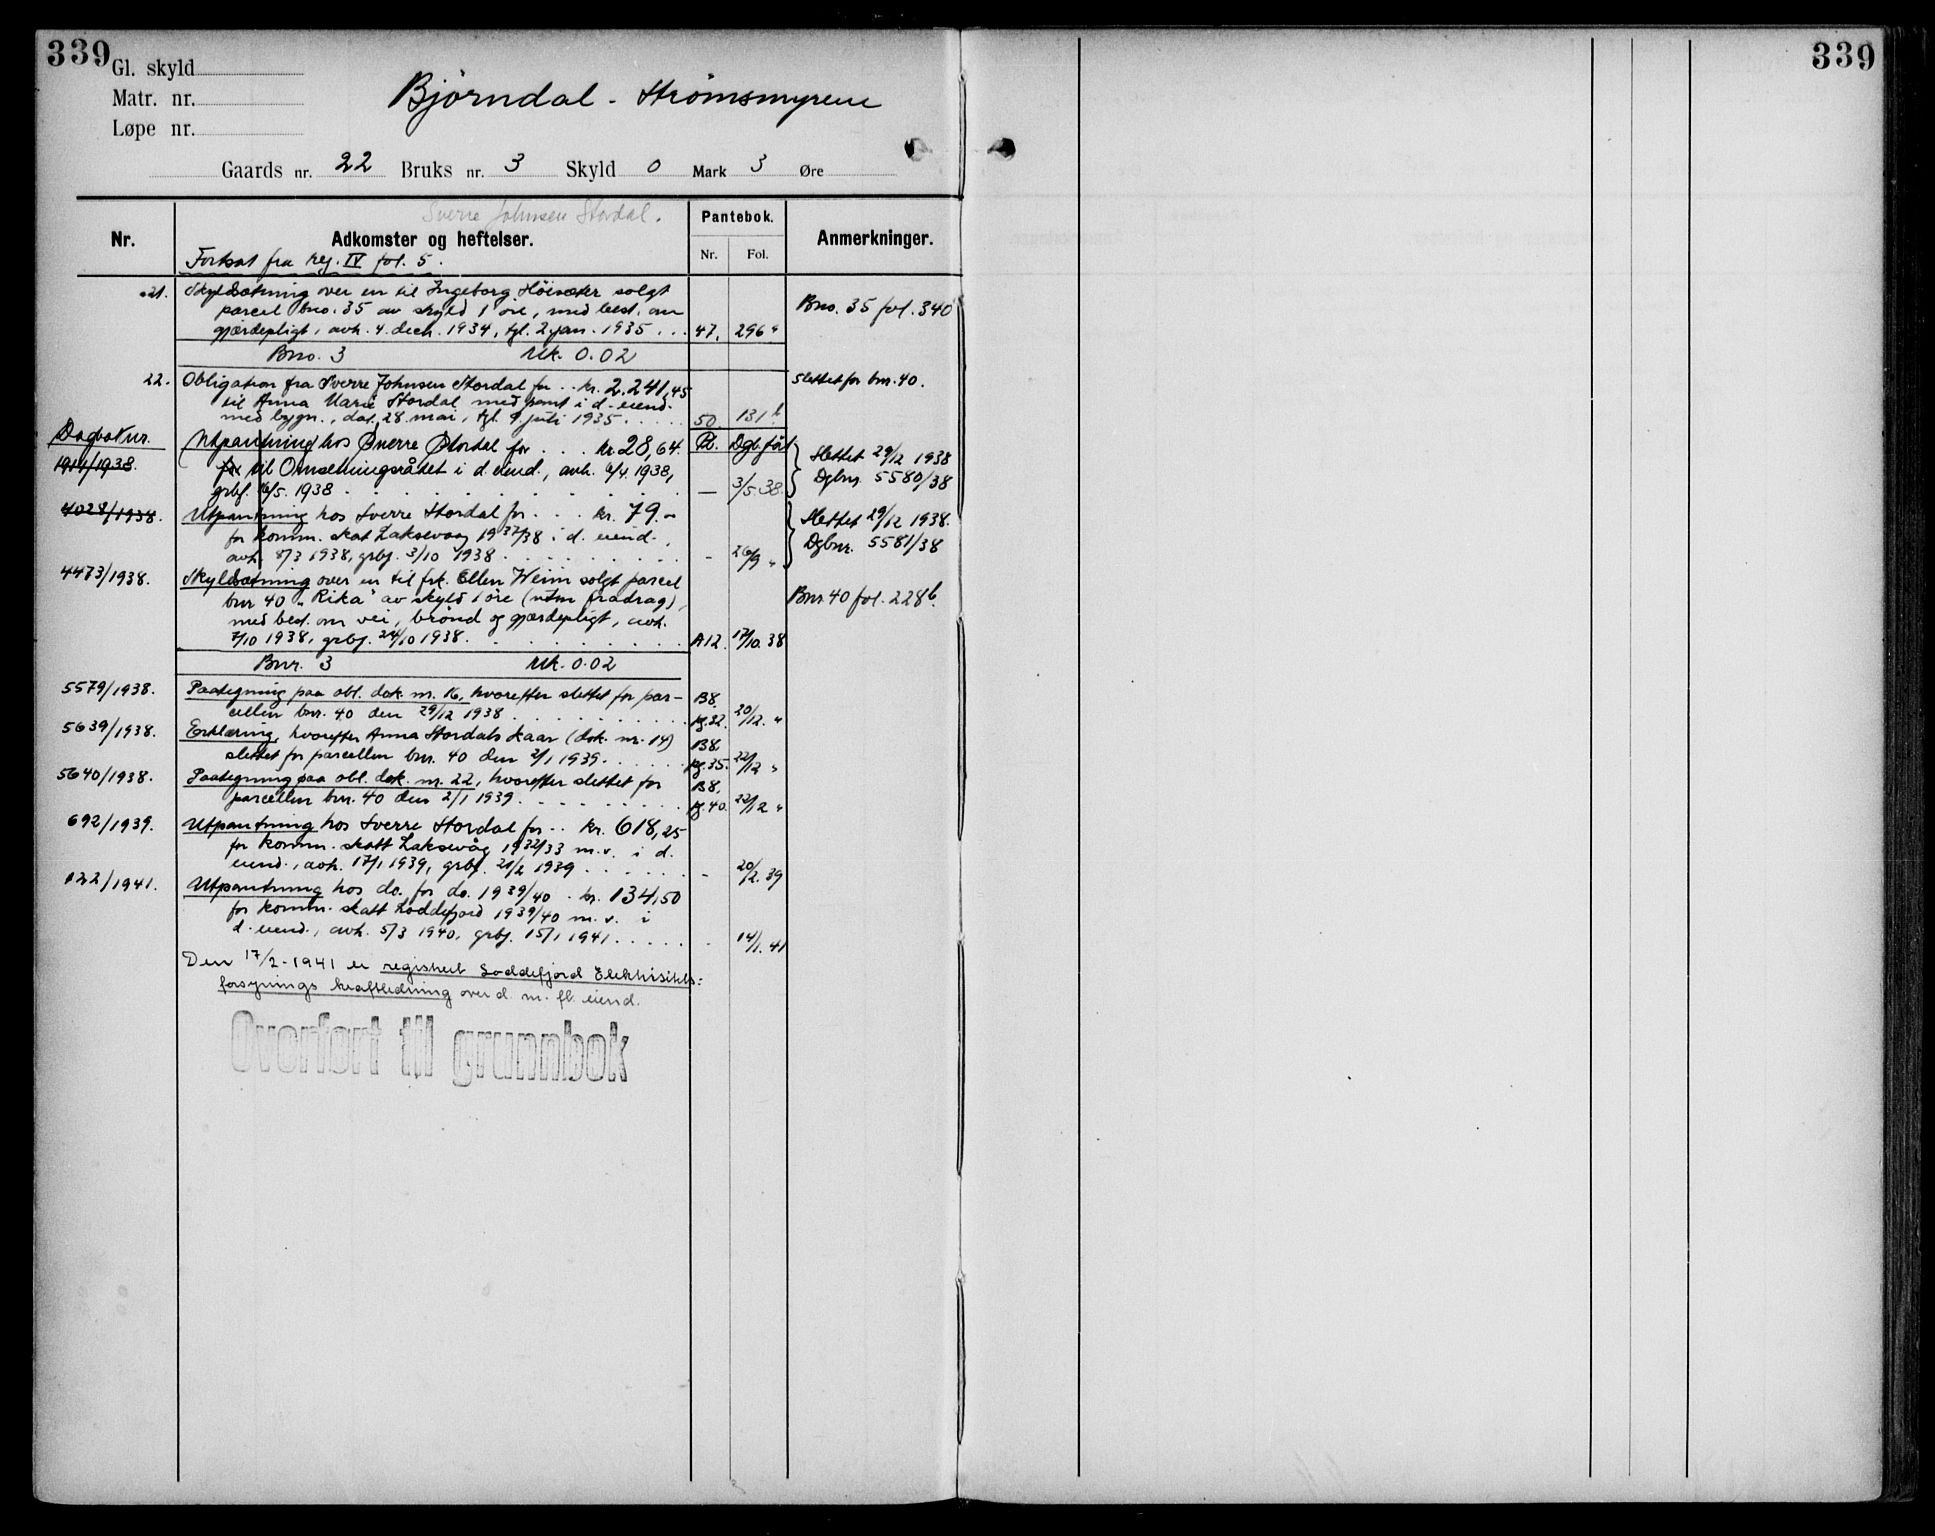 339
339
Gl. skyld
Matr. nr.
Løpe nr.
Bjørndal - Strømsmyrene
Gaards nr. 22 Bruks nr. 3 Skyld 0 Mark 3 Øre
Sverre Johnsen Stordal.
Nr. Adkomster og heftelser. Pantebok. Anmerkninger.
Nr. Fol.
Fortsat fra reg. IV fol. 5.
21. Skyldsetning over en til Ingeborg Höisæter solgt
parcel bno. 35 av skyld 1 öre, med best. om Bno. 35 fol. 340
gjærdepligt, avh. 4. decb. 1934, tgl. 2 jan. 1935 . . . 47. 296
Bno. 3 Mk. 0.02
22. Obligation fra Sverre Johnsen Stordal for . . kr. 2.241,45 Slettet for bnr. 40.
til Anna Marie Stordal med pant i d. eiend.
med bygn., dat. 28. mai, tgl. 9. juli 1935 . . . . . 50 131b
Dagboknr.
1914/1938. Utpantning hos Sverre Stordal for . . . kr. 28,64. Pb. Dgb.ført
for til Omsetningsrådet i d. eiend., avh. 6/4 1938, Slettet 29/12 1938
grbf. 16/5. 1938 . . . . . . . . . — 3/5.38. Dgbnr. 5580/38
4028/1938. Utpantning hos Sverre Stordal for . . . kr. 79.- Slettet 29/12 1938.
for komm. skat Laksevaag 1937/38 i d. eiend., Dgbnr. 5581/38
avh. 8/3 1938, grbf. 3/10 1938 . . . . . . . - 26/9 "
4473/1938. Skyldsetning over en til frk. Ellen Heim solgt parcel
bnr 40 "Rika" av skyld 1 öre (uten fradrag), Bnr. 40 fol. 228b.
med best. om vei, brønd og gjærdepligt, avh.
7/10 1938, grbf. 24/10 1938. . . . . . . . A12. 17/10.38
Bnr. 3 Mk. 0.02
5579/1938. Paategning paa obl. dok. nr. 16, hvorefter slettet for par- B8.
cellen bnr. 40 den 29/12 1938 . . . . . . . . . pg.32. 20/12. "
5639/1938. Erklæring, hvorefter Anna Stordals kaar (dok. nr. 14) B8.
slettet for parcellen bnr. 40 den 2/1 1939. . . . . . pg.35. 22/12 "
5640/1938. Paategning paa obl. dok. nr. 22, hvorefter slettet for B8.
parcellen bnr. 40 den 2/1 1939. . . . . . . . . pg.40. 22/12 "
692/1939. Utpantning hos Sverre Stordal for . . kr. 618,25
for komm. skatt Laksevåg 1932/33 m.v. i d.
eiend., avh. 17/1 1939, grbf. 21/2 1939 . . . . . . - 20/2. 39
122/1941. Utpantning hos do. for do. 1939/40 . kr. 134,50
for komm. skatt Loddefjord 1939/40 m.v. i
d. eiend., avh. 5/3 1940, grbf. 15/1 1941. . . . . - 14/1. 41
Den 17/2-1941 er registrert Loddefjord Elektrisitets:
forsynings kraftledning over d. m. fl. eiend.
Overført til grunnbok